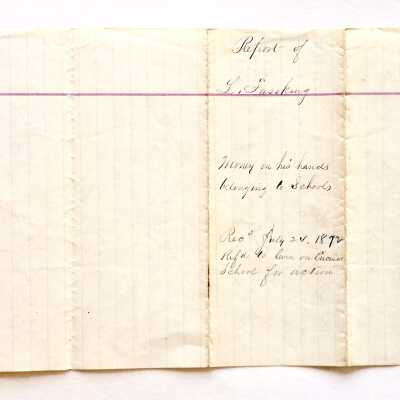 Report of
L. Fussking
Money in his hands
belonging to Schools
Recd July 24. 1892
Refd to Com on
School for action